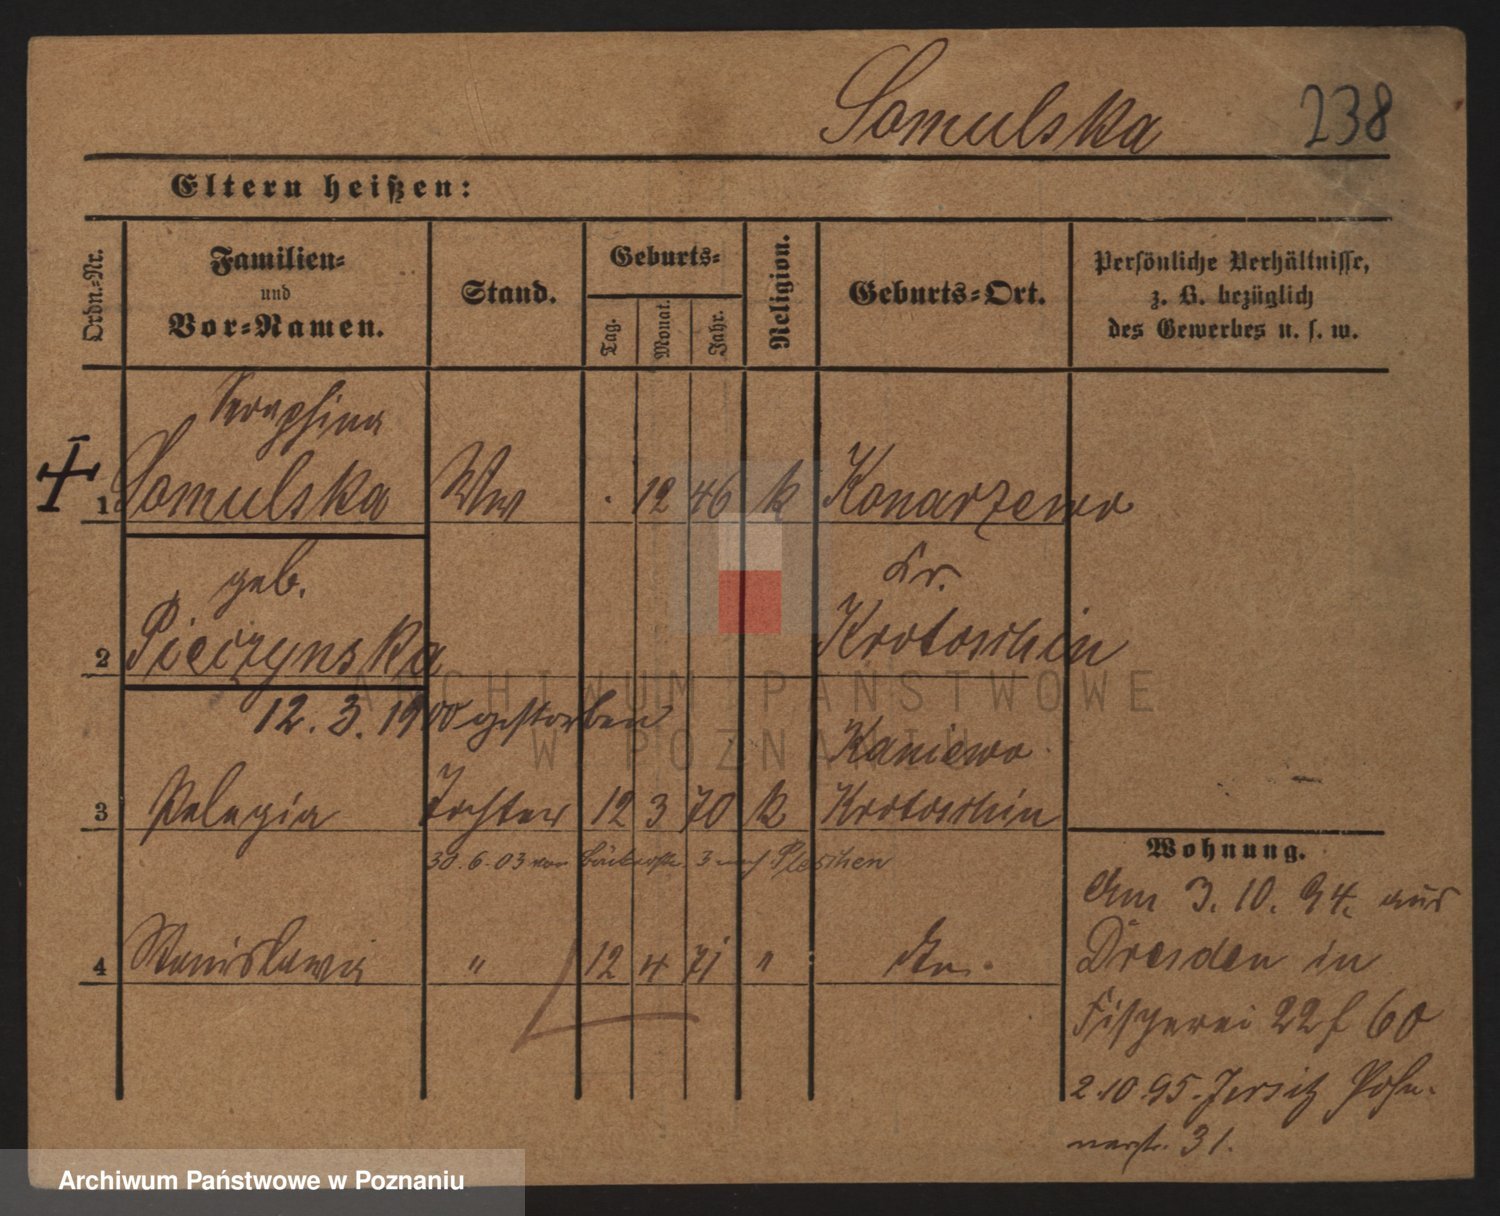 Somulska 238
Eltern heißen:
Ordn.-Nr.
Familien-
und
Vor-Namen.
Stand.
Geburts-
Tag.
Monat.
Jahr.
Religion.
Geburts-Ort.
Persönliche Verhältnisse,
z. B. bezüglich
des Gewerbes u. s. w.
Seraphina
1 Somulska Ww . 12 46 k Konarzewo
geb. Kr.
2 Pieczynska Krotoschin
12.3.1900 gestorben
Kaniewo
3 Pelagia Tochter 12 3 70 k Krotoschin
30.6.03 von 3 nach Pleschen
4 Stanislawa " 12 4 71 " do.
Wohnung.
Am 3.10.94. aus
Dresden in
Fischerei 22 f 60
2.10.95. Jersitz Posen-
nerstr. 31.
ARCHIWUM PAŃSTWOWE
W POZNANIU
Archiwum Państwowe w Poznaniu